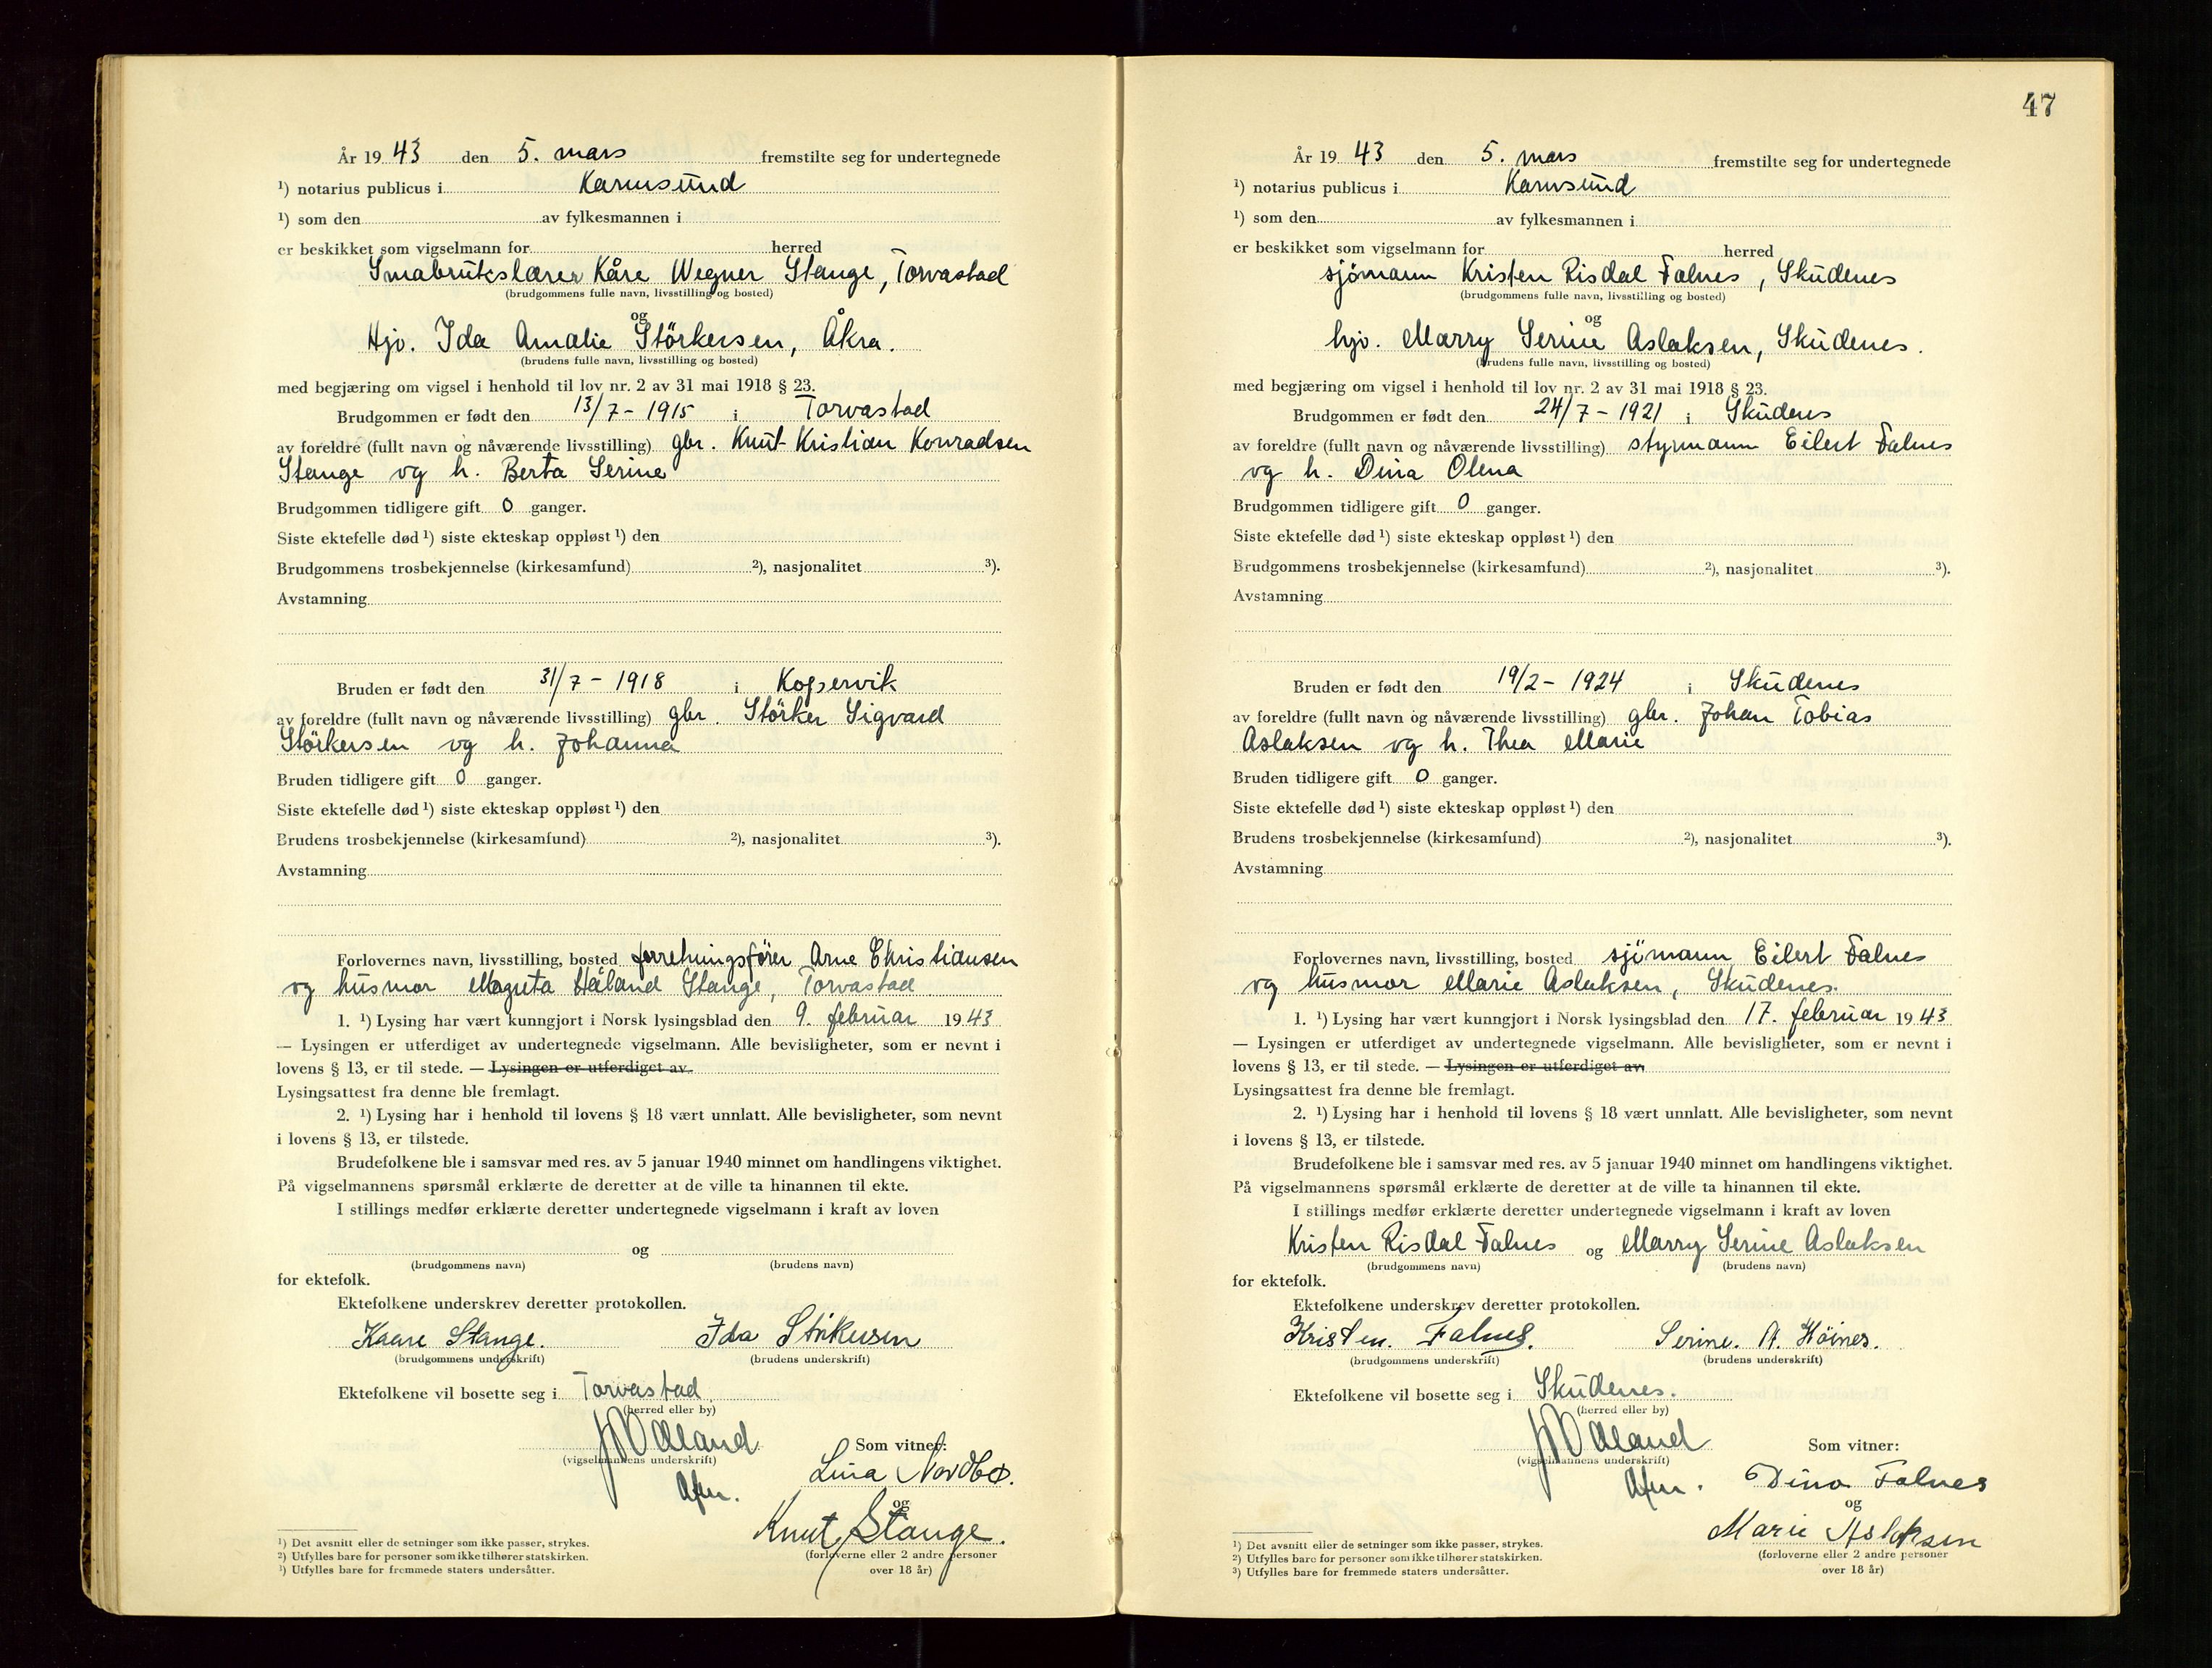 År 19 43 den 5. mars fremstilte seg for undertegnede
¹) notarius publicus i Karmsund
¹) som den av fylkesmannen i
er beskikket som vigselmann for herred
Småbrukslærer Kåre Wegner Stange, Torvastad
(brudgommens fulle navn, livsstilling og bosted)
og
Hjv. Ida Amalie Störkersen, Åkra.
(brudens fulle navn, livsstilling og bosted)
med begjæring om vigsel i henhold til lov nr. 2 av 31 mai 1918 § 23.
Brudgommen er født den 13/7 - 1915 i Torvastad
av foreldre (fullt navn og nåværende livsstilling) gbr. Knut Kristian Konradsen
Stange og h. Berta Serine
Brudgommen tidligere gift 0 ganger.
Siste ektefelle død ¹) siste ekteskap oppløst ¹) den
Brudgommens trosbekjennelse (kirkesamfund) ²), nasjonalitet ³).
Avstamning
Bruden er født den 31/7 - 1918 i Kopervik
av foreldre (fullt navn og nåværende livsstilling) gbr. Störker Sigvard
Störkersen og h. Johanna
Bruden tidligere gift 0 ganger.
Siste ektefelle død ¹) siste ekteskap oppløst ¹) den
Brudens trosbekjennelse (kirkesamfund) ²), nasjonalitet ³).
Avstamning
Forlovernes navn, livsstilling, bosted forretningsfører Arne Christiansen
og husmor Magnta Håland Stange, Torvastad
1. ¹) Lysing har vært kunngjort i Norsk lysingsblad den 9. februar 19 43
— Lysingen er utferdiget av undertegnede vigselmann. Alle bevisligheter, som er nevnt i
lovens § 13, er til stede. — Lysingen er utferdiget av
Lysingsattest fra denne ble fremlagt.
2. ¹) Lysing har i henhold til lovens § 18 vært unnlatt. Alle bevisligheter, som nevnt
i lovens § 13, er tilstede.
Brudefolkene ble i samsvar med res. av 5 januar 1940 minnet om handlingens viktighet.
På vigselmannens spørsmål erklærte de deretter at de ville ta hinannen til ekte.
I stillings medfør erklærte deretter undertegnede vigselmann i kraft av loven
og
(brudgommens navn) (brudens navn)
for ektefolk.
Ektefolkene underskrev deretter protokollen.
Kaare Stange. Ida Störkersen
(brudgommens underskrift) (brudens underskrift)
Ektefolkene vil bosette seg i Torvastad
(herred eller by)
Ådland
(vigselmannens underskrift)
Som vitner:
Lina Nordbø.
og
Knut Stange.
(forloverne eller 2 andre personer
over 18 år)
¹) Det avsnitt eller de setninger som ikke passer, strykes.
²) Utfylles bare for personer som ikke tilhører statskirken.
¹) Utfylles bare for fremmede staters undersåtter.
47
År 19 43 den 5. mars fremstilte seg for undertegnede
¹) notarius publicus i Karmsund
¹) som den av fylkesmannen i
er beskikket som vigselmann for herred
sjömann Kristen Risdal Falnes, Skudenes
(brudgommens fulle navn, livsstilling og bosted)
og
hjv. Marry Serine Aslaksen, Skudenes.
(brudens fulle navn, livsstilling og bosted)
med begjæring om vigsel i henhold til lov nr. 2 av 31 mai 1918 § 23.
Brudgommen er født den 24/7 - 1921 i Skudenes
av foreldre (fullt navn og nåværende livsstilling) styrmann Eilert Falnes
og h. Dina Olena
Brudgommen tidligere gift 0 ganger.
Siste ektefelle død ¹) siste ekteskap oppløst ¹) den
Brudgommens trosbekjennelse (kirkesamfund) ²), nasjonalitet ³).
Avstamning
Bruden er født den 19/2 - 1924 i Skudenes
av foreldre (fullt navn og nåværende livsstilling) gbr. Johan Tobias
Aslaksen og h. Thea Marie
Bruden tidligere gift 0 ganger.
Siste ektefelle død ¹) siste ekteskap oppløst ¹) den
Brudens trosbekjennelse (kirkesamfund) ²), nasjonalitet ³).
Avstamning
Forlovernes navn, livsstilling, bosted sjömann Eilert Falnes
og husmor Marie Aslaksen, Skudenes.
1. ¹) Lysing har vært kunngjort i Norsk lysingsblad den 17. februar 19 43
— Lysingen er utferdiget av undertegnede vigselmann. Alle bevisligheter, som er nevnt i
lovens § 13, er til stede. — Lysingen er utferdiget av
Lysingsattest fra denne ble fremlagt.
2. ¹) Lysing har i henhold til lovens § 18 vært unnlatt. Alle bevisligheter, som nevnt
i lovens § 13, er tilstede.
Brudefolkene ble i samsvar med res. av 5 januar 1940 minnet om handlingens viktighet.
På vigselmannens spørsmål erklærte de deretter at de ville ta hinannen til ekte.
I stillings medfør erklærte deretter undertegnede vigselmann i kraft av loven
Kristen Risdal Falnes og Marry Serine Aslaksen
(brudgommens navn) (brudens navn)
for ektefolk.
Ektefolkene underskrev deretter protokollen.
Kristen. Falnes. Serine. A. Höines.
(brudgommens underskrift) (brudens underskrift)
Ektefolkene vil bosette seg i Skudenes.
(herred eller by)
Ådland
(vigselmannens underskrift)
Som vitner:
Dina Falnes
og
Marie Aslaksen
(forloverne eller 2 andre personer
over 18 år)
¹) Det avsnitt eller de setninger som ikke passer, strykes.
²) Utfylles bare for personer som ikke tilhører statskirken.
³) Utfylles bare for fremmede staters undersåtter.